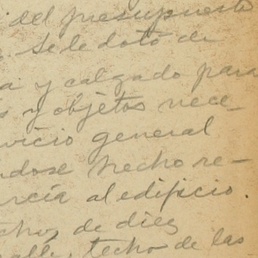 del presupuesto
se le dotó de
a y calzado para
s y objetos nece-
vicio general
ndose hecho re-
rcía al edificio.
cho, de diez
calle, techo de las